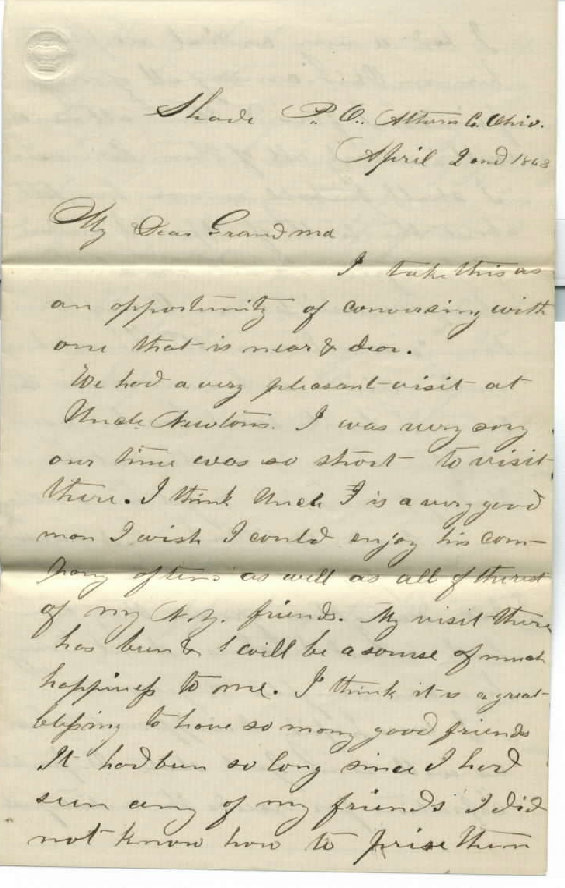 Shade P. O. Athens Co. Ohio.
April 2nd 1863
My Dear Grandma
I take this as
an opportunity of conversing with
one that is near & dear.
We had a very pleasant visit at
Uncle Newtons. I was very sory
our time was so short to visit
there. I think Uncle F is a very good
man I wish I could enjoy his com-
pany often as well as all of the rest
of my N.Y. friends. My visit there
has been & will be a sourse of much
happiness to me. I think it is a great
blessing to have so many good friends
It had been so long since I had
seen any of my friends I did
not know how to prise them